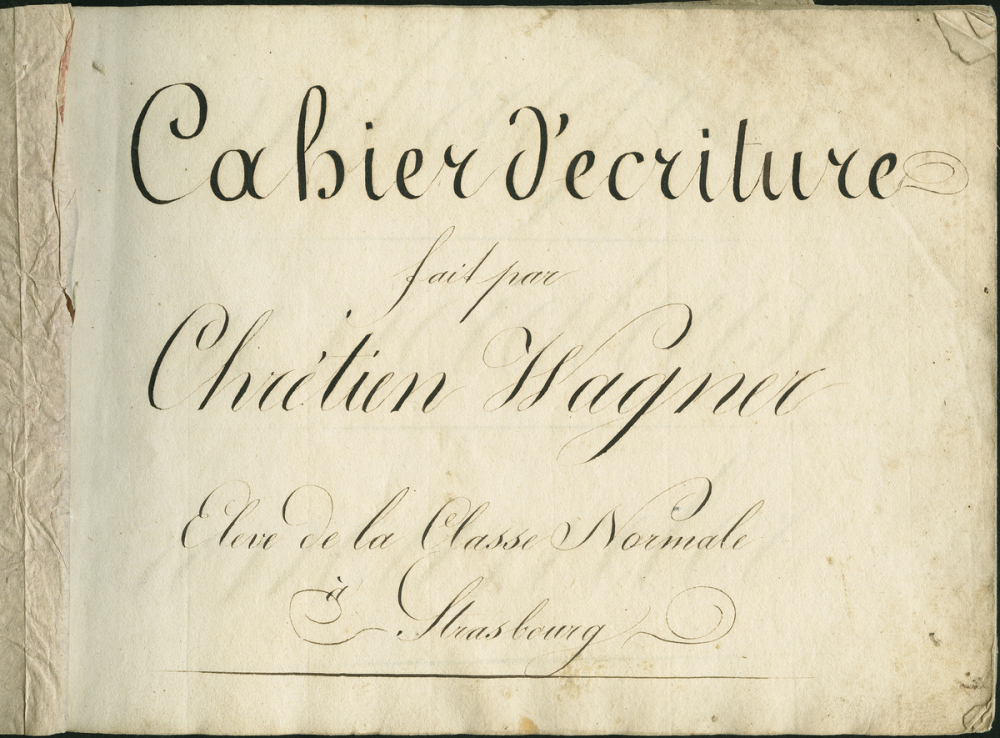 Cahier d'ecriture
fait par
Chrétien Wagner
Eleve de la Classe Normale
à
Strasbourg